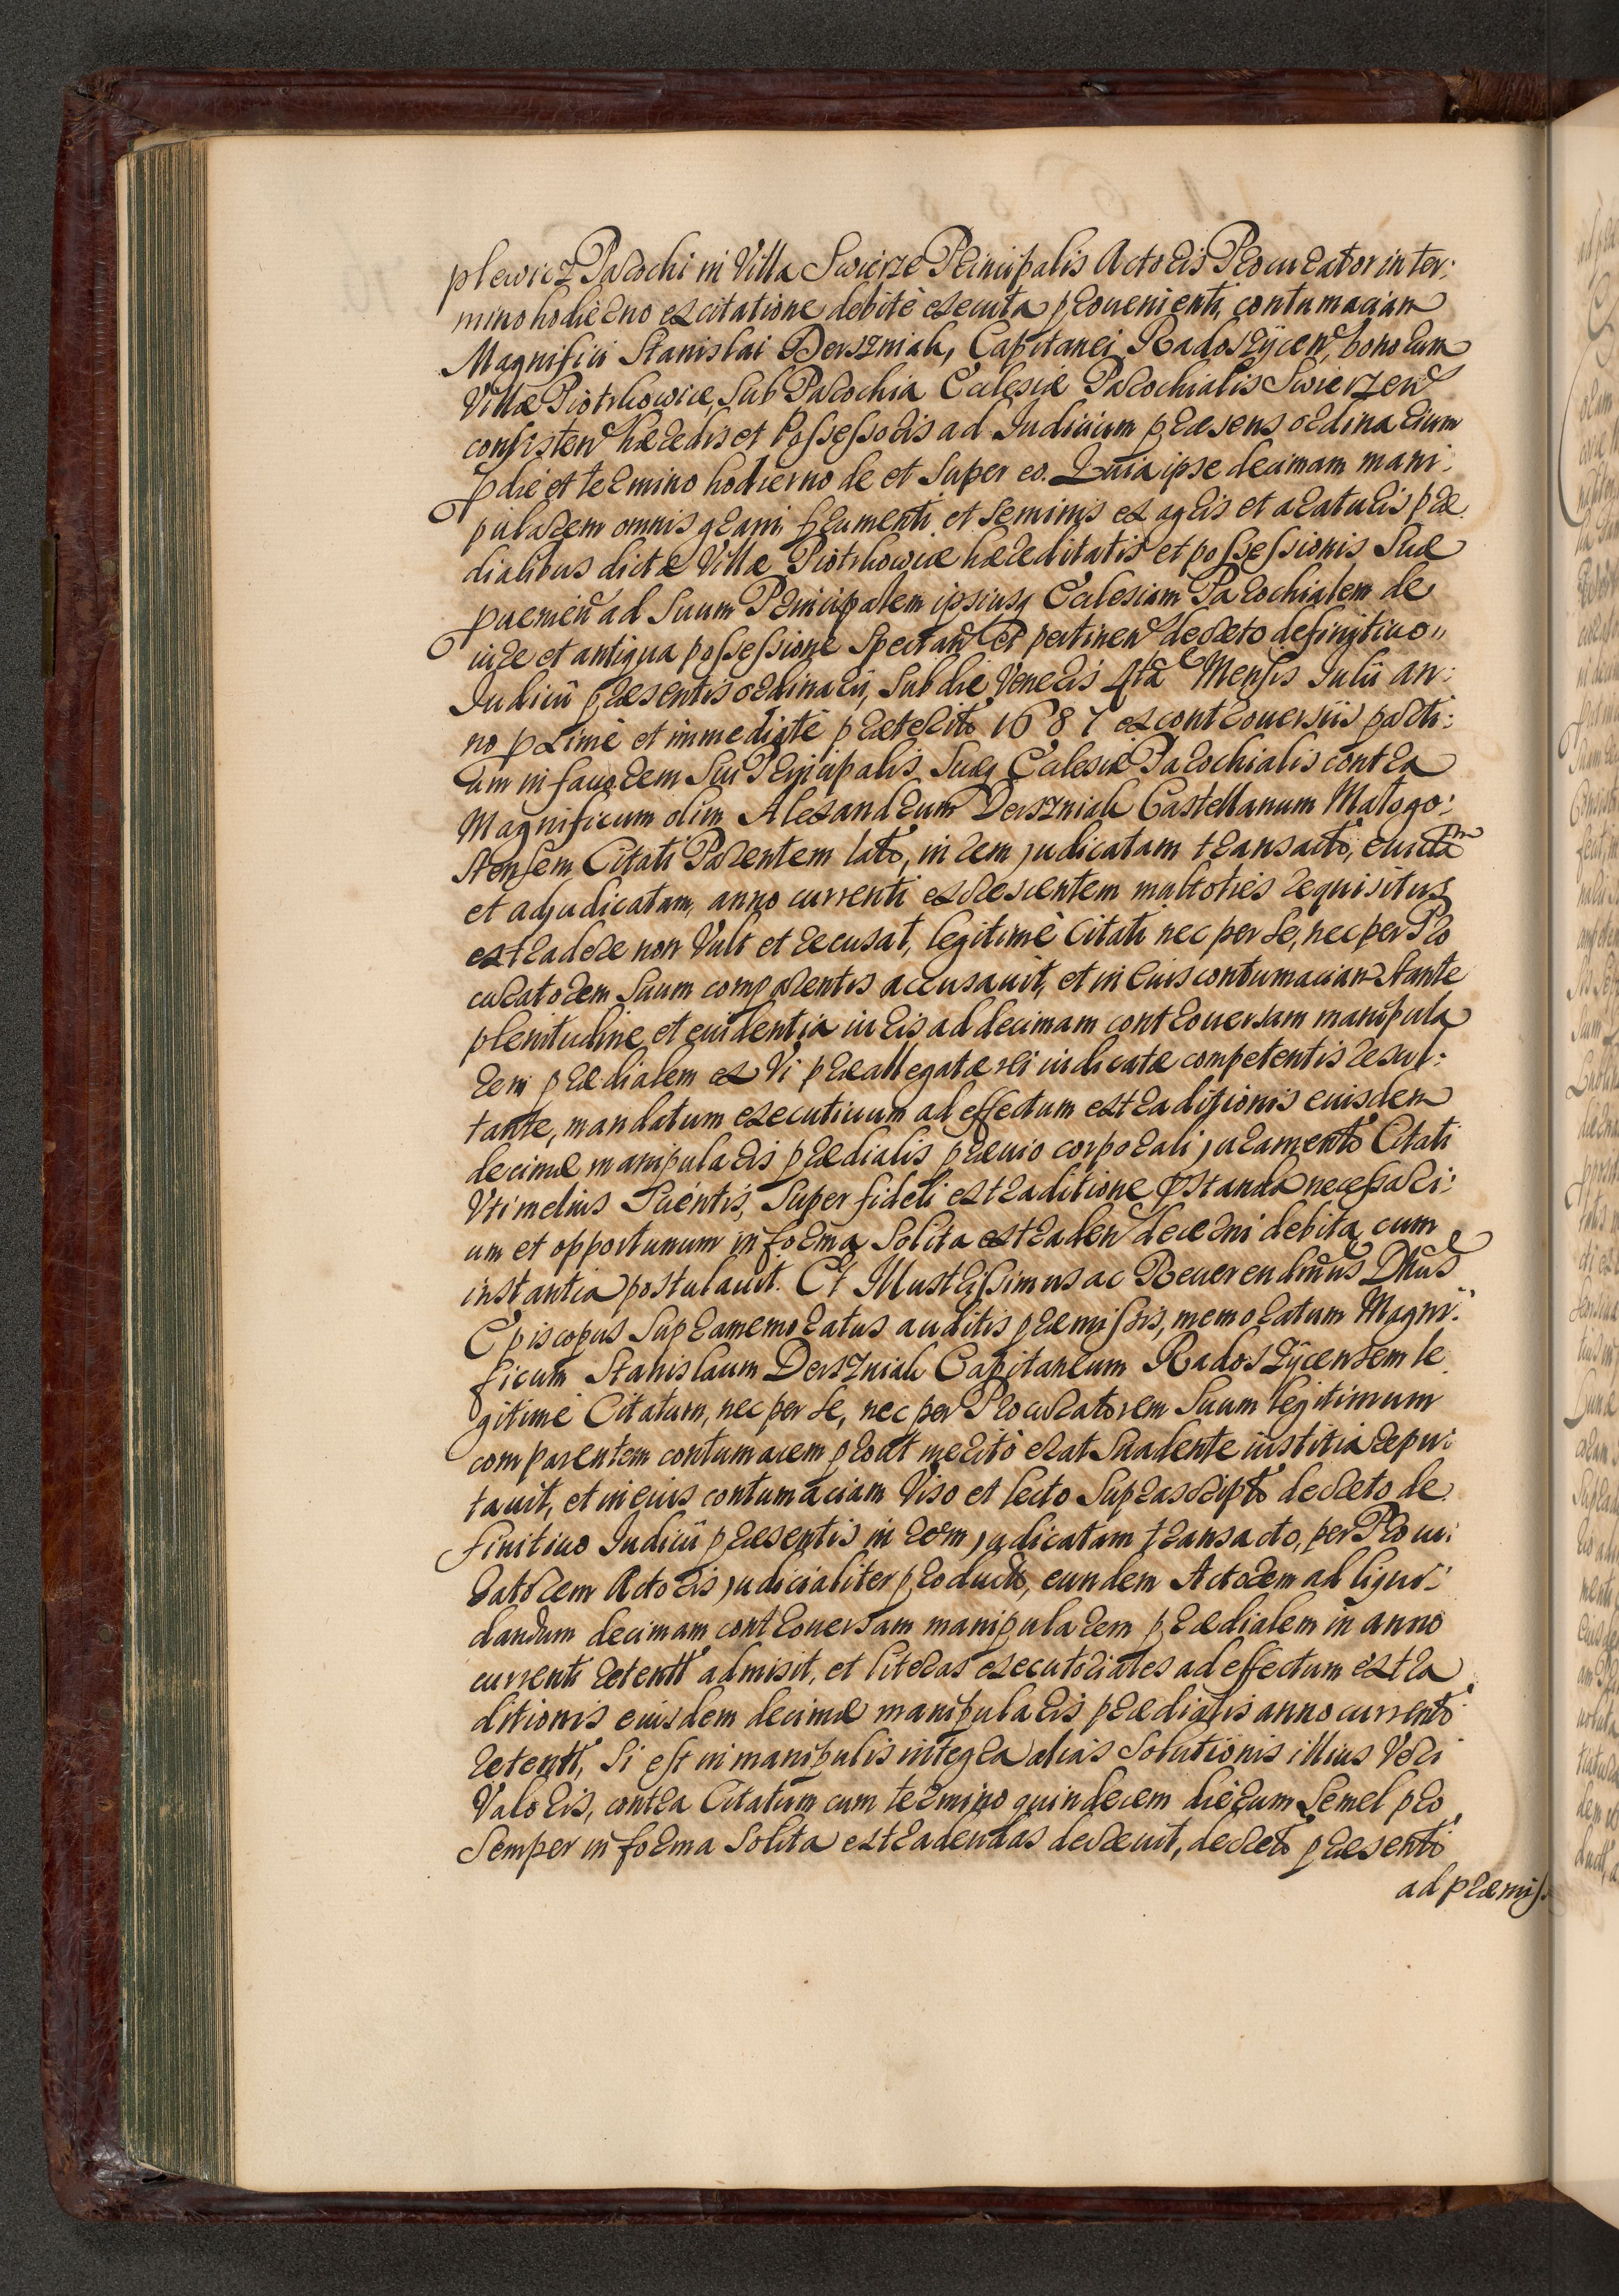 plewicz Parochi in Villa Swierze Principalis Actoris Procurator in ter:
mino hodierno ex citatione debitè executa prouenienti, contumaciam
Magnifici Stanislai Derszniak, Capitanei Radoszÿcen, bonorum
Villæ Piotrkowice, Sub Parochia Ecclesiæ Parochialis Swierzen
consisten hæredis et Possessoris ad Iudicium præsens ordinarium
p die et termino hodierno de et super eo. Quia ipse decimam mani:
pularem omnis grani frumenti et seminis ex agris et araturis præ
dialibus dictæ Villæ Piotrkowice hæreditatis et possessionis Suæ
puenien ad Suum Principalem ipsiusq Ecclesiam Parochialem de
iure et antiqua possessione Spectan et pertinen decreto definitiuo
Iudicii præsentis ordinarii, sub die Veneris 4ta Mensis Iulii an:
no primè et immediatè præterito 1687 ex controuersiis parti:
um in fauorem Sui Principalis Suæq Ecclesiæ Parochialis contra
Magnificum olim Alexandrum Derszniak Castellanum Małogo:
stensem Citati Parentem lato, in rem judicatam transacto, euictam
et adjudicatam, anno currenti excrescentem multoties requisitus
extradere non Vult et recusat, legitimè Citati nec per se, nec per Pro
curatorem Suum comparentis accusauit, et in Eius contumaciam Stante
plenitudine et euidentia iuris ad decimam controuersam manipula
rem prædialem ex Vi præallegatæ rei iudicatæ competentis resul:
tante, mandatum executiuum ad effectum extraditionis eiusdem
decimæ manipularis prædialis præuio corporali juramento Citati
Vti melius Scientis, Super fideli extraditione pstanda necessari:
um et opportunum in forma Solita extraden decerni debita cum
instantia postulauit. Et Illustrissimus ac Reuerendmus Dnus
Episcopus Supramemoratus auditis præmissis, memoratum Magni:
ficum Stanislaum Derszniak Capitaneum Radoszÿcensem le
gitimè Citatum, nec per se, nec per Procuratorem Suum legitimum
comparentem contumacem prout meritò erat Suadente iustitia repu:
tauit, et in eius contumaciam Viso et lecto Suprascripto decreto de
finitiuo Iudicii præsentis in rem judicatam transacto, per Procu:
ratorem Actoris judicialiter producto, eundem Actorem ad liqui:
dandum decimam controuersam manipularem prædialem in anno
currenti retent admisit, et literas executoriales ad effectum extra
ditionis eiusdem decimæ manipularis prædialis anno currenti
retent, Si est in manipulis integra aliàs Solutionis illius Veri
Valoris, contra Citatum cum termino quindecem dierum Semel pro
Semper in forma Solita extradendas decreuit, decreto præsenti
ad præmiss